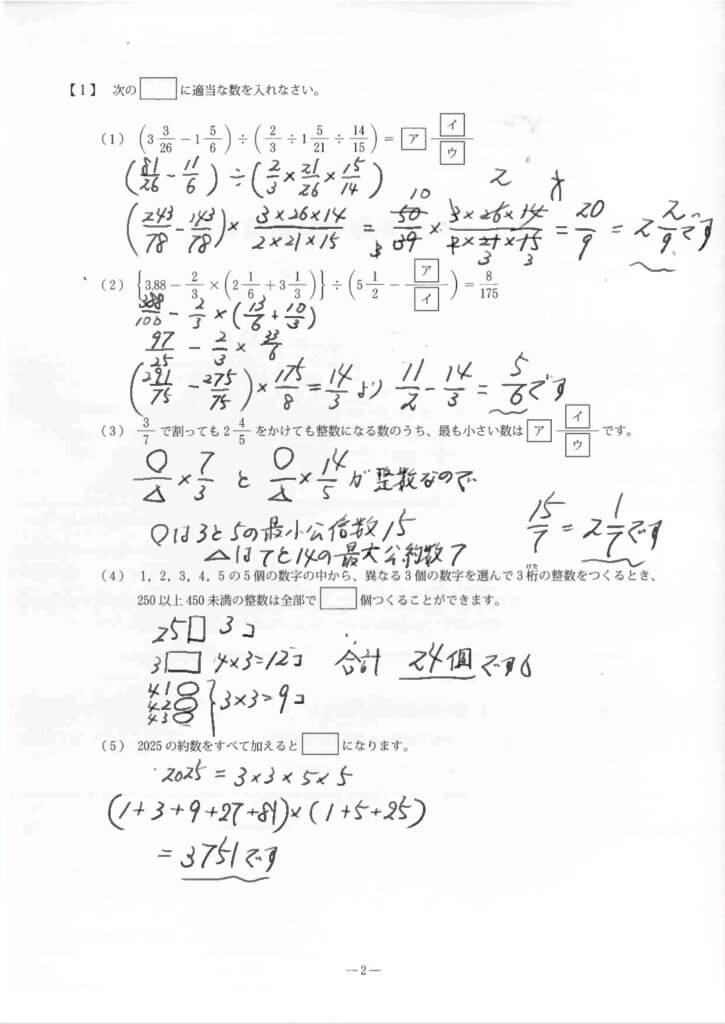 【1】 次の□に適当な数を入れなさい。
(1) (3 3/26 − 1 5/6) ÷ (2/3 ÷ 1 5/21 ÷ 14/15) = ア イ/ウ
(81/26 − 11/6) ÷ (2/3 × 21/26 × 15/14)
(243/78 − 143/78) × 3×26×14/2×21×15 = 50/39 × 3×26×14/2×21×15 = 20/9 = 2 2/9 です
(2) {3.88 − 2/3 × (2 1/6 + 3 1/3)} ÷ (5 1/2 − ア/イ) = 8/175
388/100 − 2/3 × (13/6 + 10/3)
97/25 − 2/3 × 33/6
(291/75 − 275/75) × 175/8 = 14/3 より 11/2 − 14/3 = 5/6 です
(3) 3/7 で割っても 2 4/5 をかけても整数になる数のうち、最も小さい数は ア イ/ウ です。
○/△ × 7/3 と ○/△ × 14/5 が整数なので
○は3と5の最小公倍数15
△は7と14の最大公約数7
15/7 = 2 1/7 です
(4) 1, 2, 3, 4, 5の5個の数字の中から、異なる3個の数字を選んで3桁の整数をつくるとき、
250以上450未満の整数は全部で□個つくることができます。
25□ 3コ
3□ 4×3=12コ 合計 24個です
41○
42○ 3×3=9コ
43○
(5) 2025の約数をすべて加えると□になります。
2025 = 3×3×5×5
(1+3+9+27+81)×(1+5+25)
= 3751です
—2—